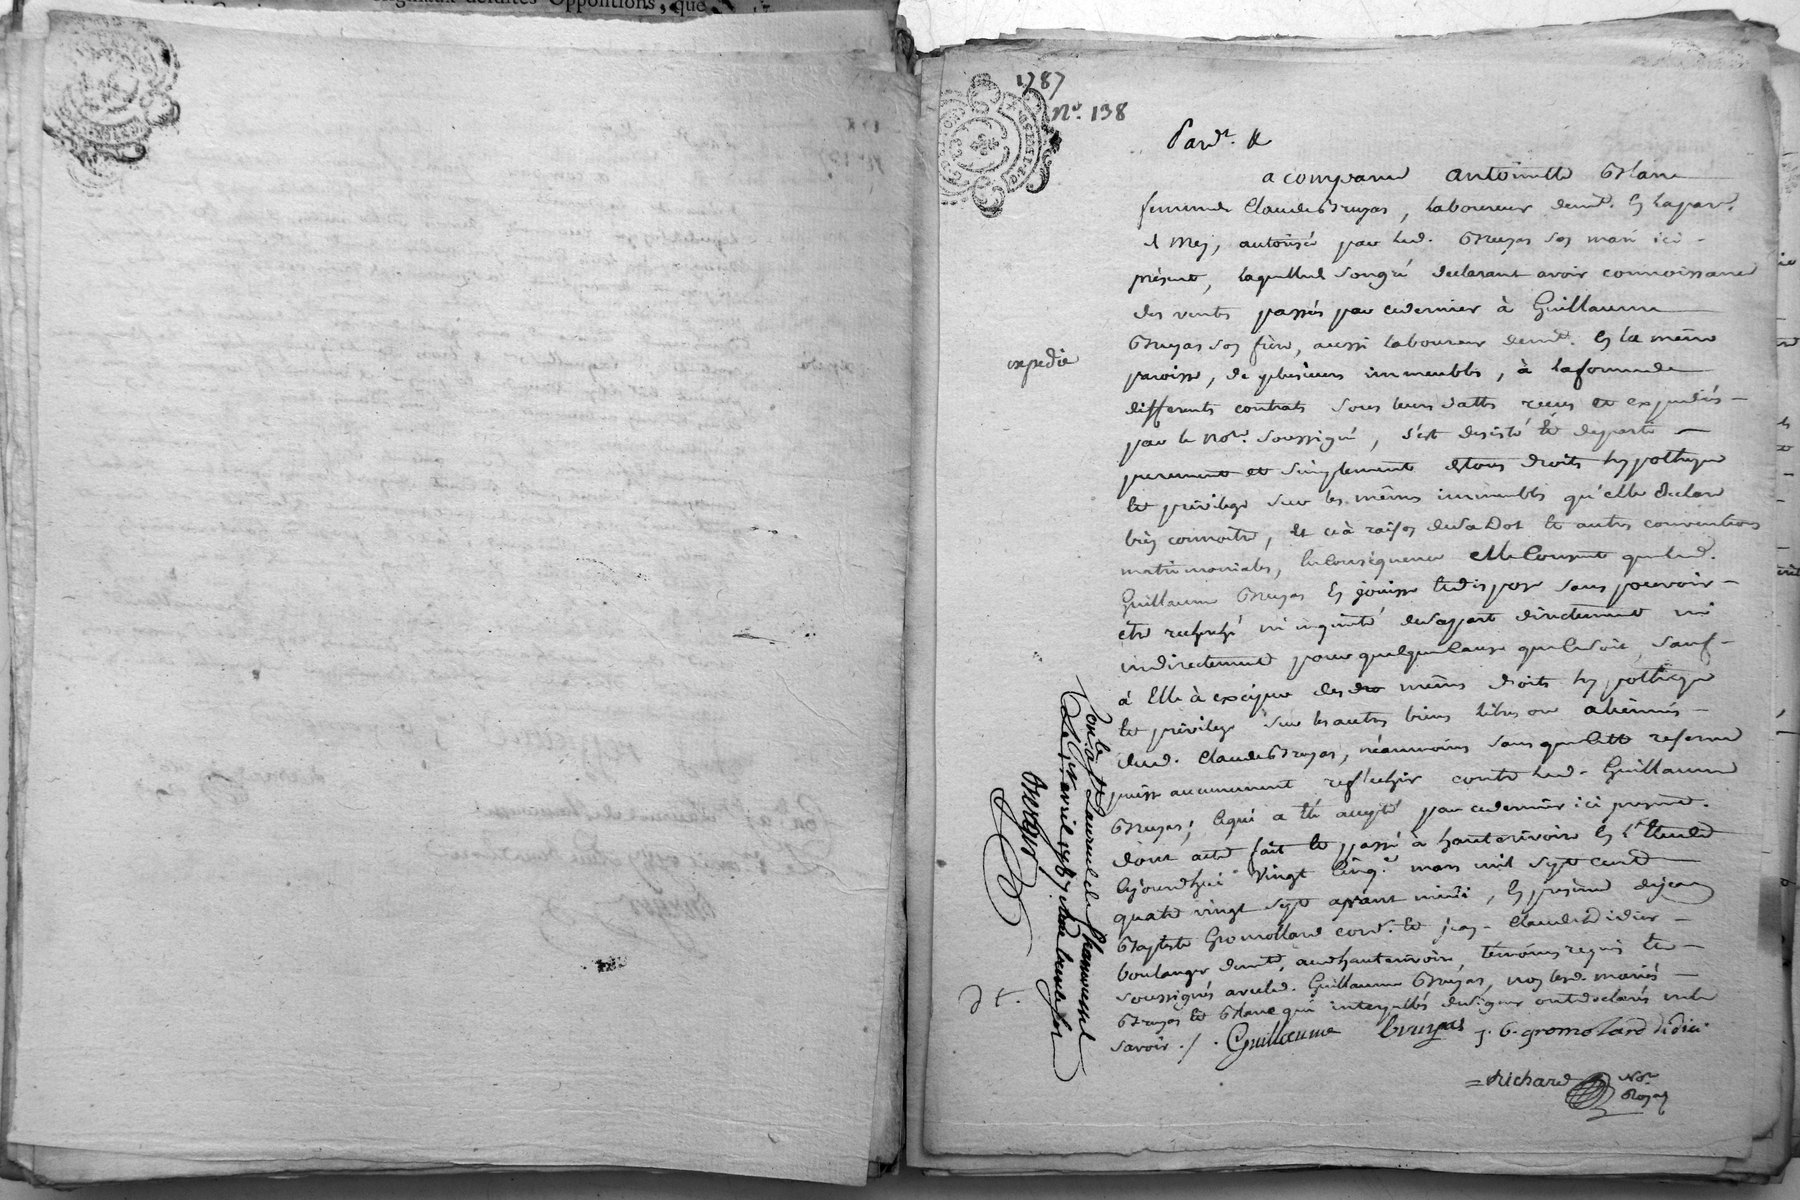 originaux desdites Oppositions, que
1787
N.º 138
Pard.t &
a comparu antoinette Blanc
femme de Claude Bruyas, laboureur demt. En la par.
d Mey, autorisée par led. Bruyas Son mari ici
présent, laquelle de Songré declarant avoir connoissance
des ventes passées par ce dernier à Guillaume
Bruyas Son frère, aussi laboureur demt. En la même
paroisse, de plusieurs immeubles, à la forme de
differents contrats Sous leurs dattes recus et expediés
par le No.re Soussigné, s'est desisté Et departie
purement et Simplement de tous droits hypotheque
Et privilege Sur les mêmes immeubles qu'elle declare
bien connoitre, Et ce à raison de Sa Dot Et autres conventions
matrimoniales, En Consequence Elle Consent que led.
Guillaume Bruyas En jouisse Et dispose Sans pouvoir
être recherché ni inquieté de Sa part directement ni
indirectement pour quelque Cause que ce Soit, Sauf
à Elle à exciper des mêmes droits hypotheque
Et privilege Sur les autres biens libres ou aliennés
dud. Claude Bruyas, néanmoins Sans que Cette reserve
puisse aucunement reflechir contre led. Guillaume
Bruyas; Ce qui a Eté accepté par ce dernier ici present.
dont acte fait Et passé à hauterivoire En l'Etude
Cejourdhui Vingt Cinq.e mars mil Sept Cent
quatre vingt Sept avant midi, En présence de jean
Baptiste Gromollard cord.r Et jean Claude Didier
boulanger demts. aud hauterivoire temoins requis Et
Soussignés avec led. Guillaume Bruyas, non lesd. mariés
Bruyas Et Blanc qui interpellés de Signer ont declarés ne le
Savoir ./.
Guillaume bruyas j. b. gromolard didier
Richard No.re Royal
expedié
Con.lé a S.t Laurent de Chamousset
Le 1er avril 1787